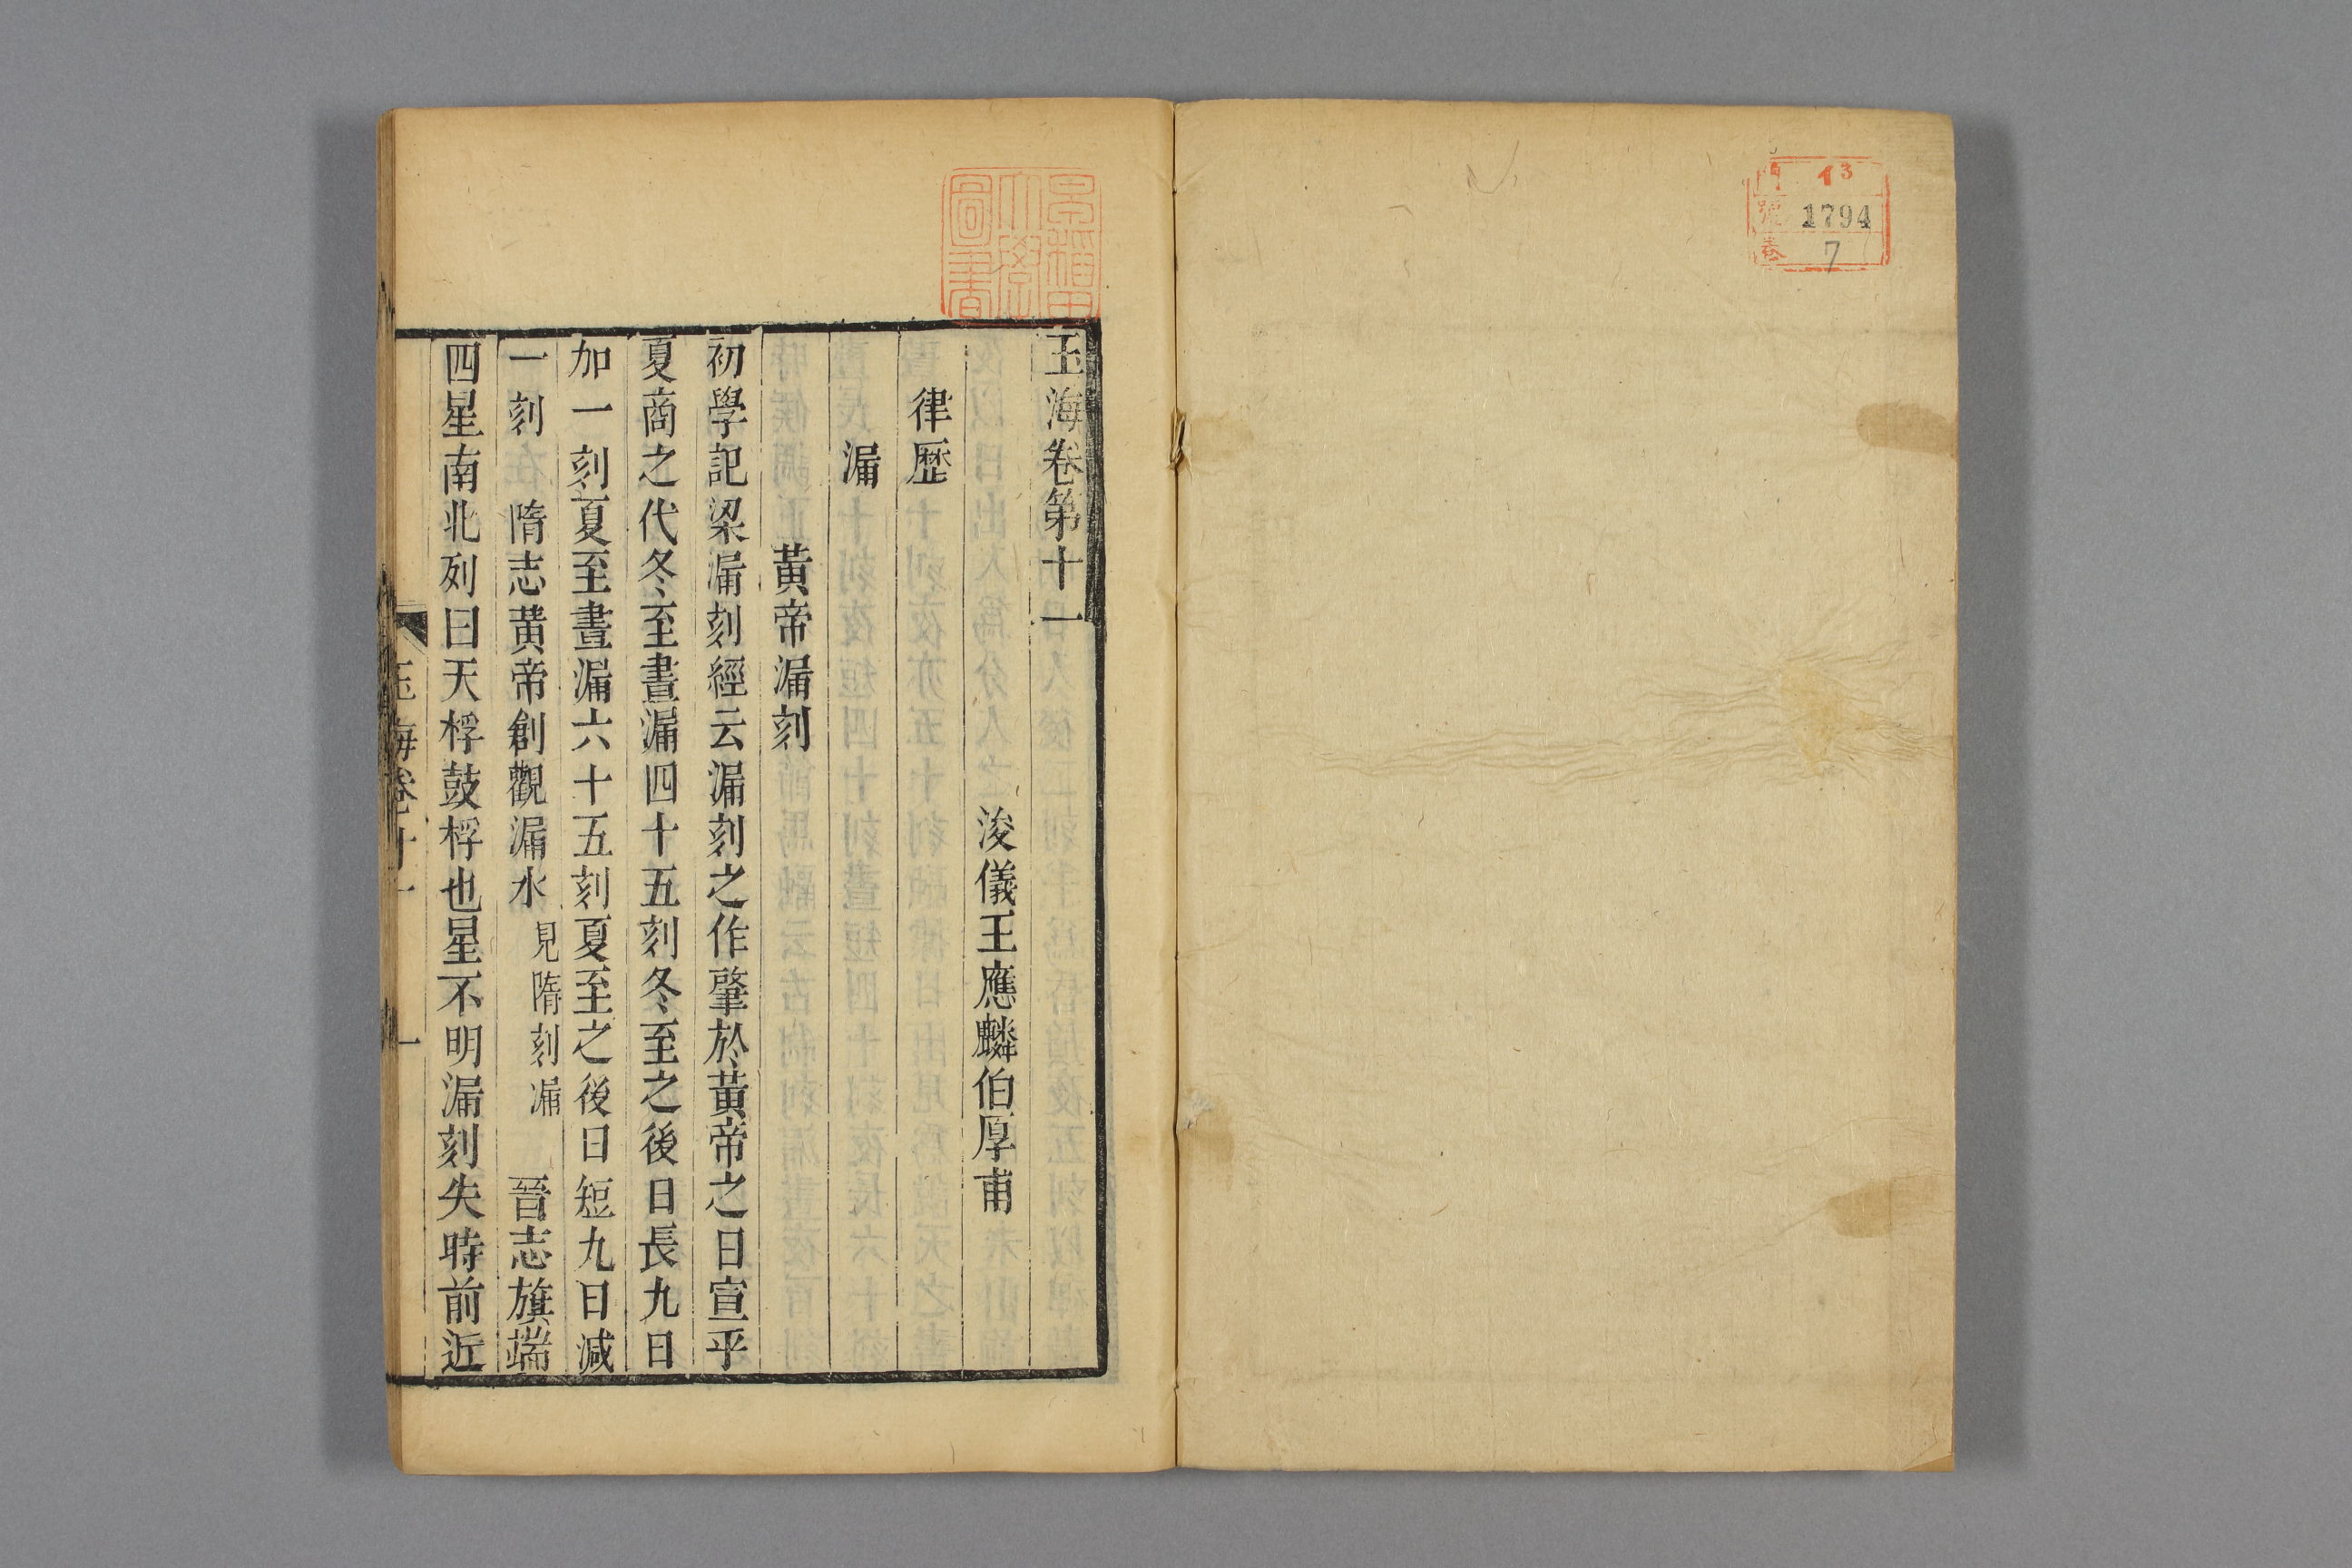 門 13
號 1794
卷 7
早稲田
大學
圖書
玉海卷第十一
浚儀王應麟伯厚甫
律歷
漏
黃帝漏刻
初學記梁漏刻經云漏刻之作肇於黃帝之日宣乎
夏商之代冬至晝漏四十五刻冬至之後日長九日
加一刻夏至晝漏六十五刻夏至之後日短九日減
一刻 隋志黃帝創觀漏水見隋刻漏 晉志旗端
四星南北列曰天桴鼓桴也星不明漏刻失時前近
玉海卷十一 一